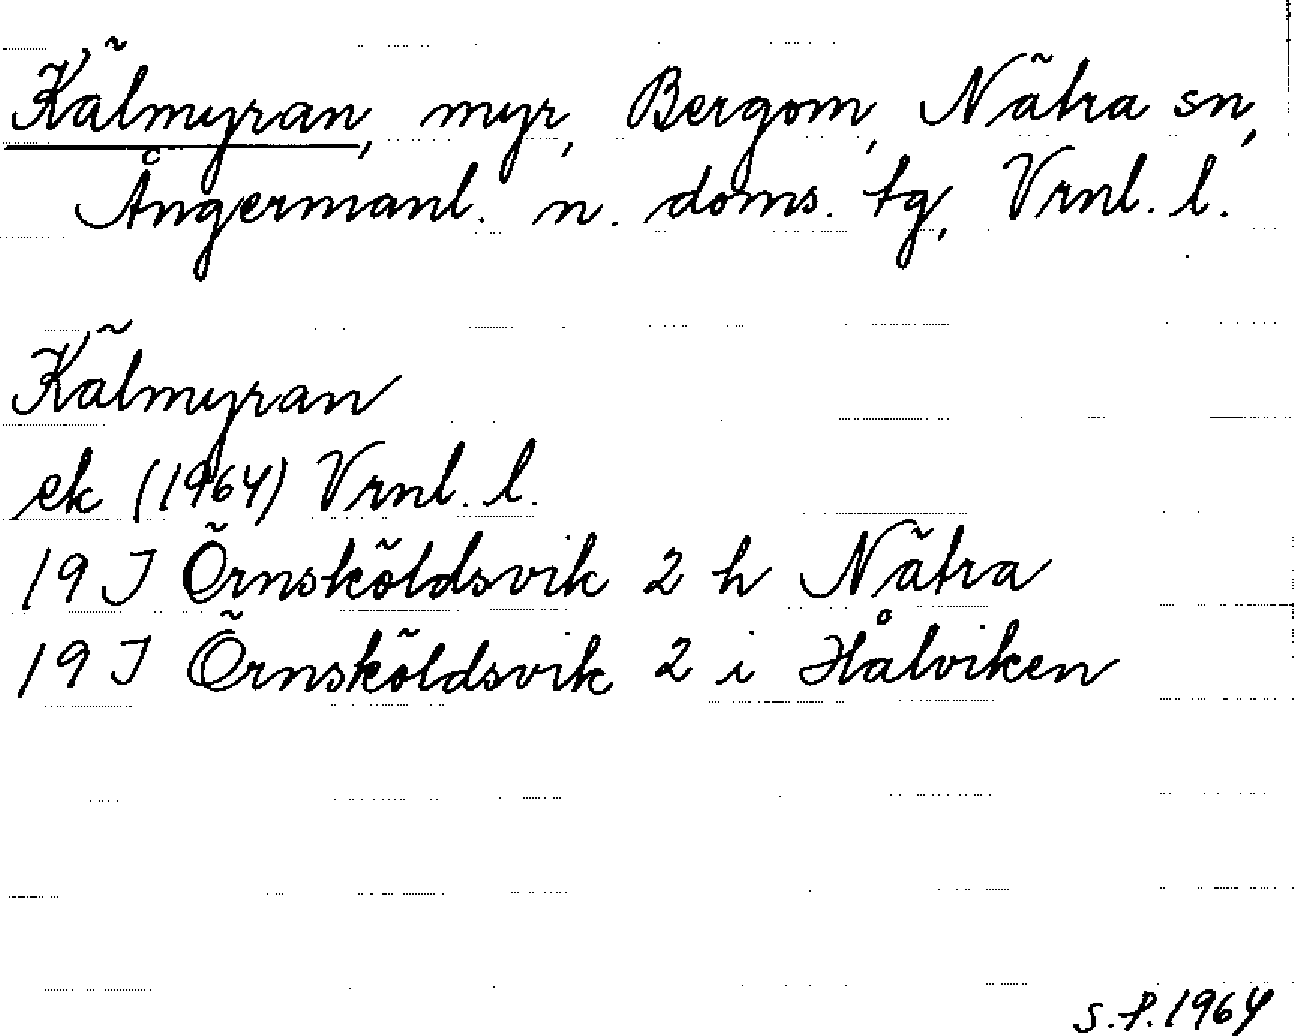 Kälmyran, myr, Bergom, Nätra sn,
Ångermanl. n. doms. tg, Vrnl. l.
Kälmyran
ek (1964) Vrnl. l.
19 J Örnsköldsvik 2 h Nätra
19 J Örnsköldsvik 2 i Hålviken
s.f. 1964